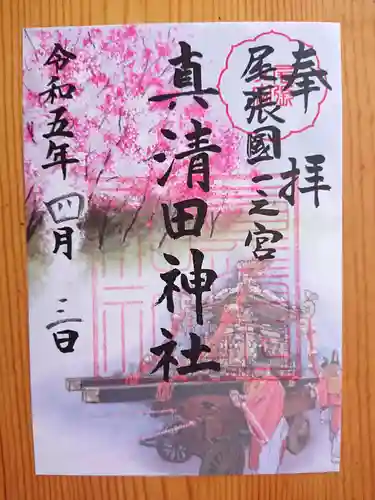 奉拝
尾張國一之宮
真清田神社
令和五年 四月 三日